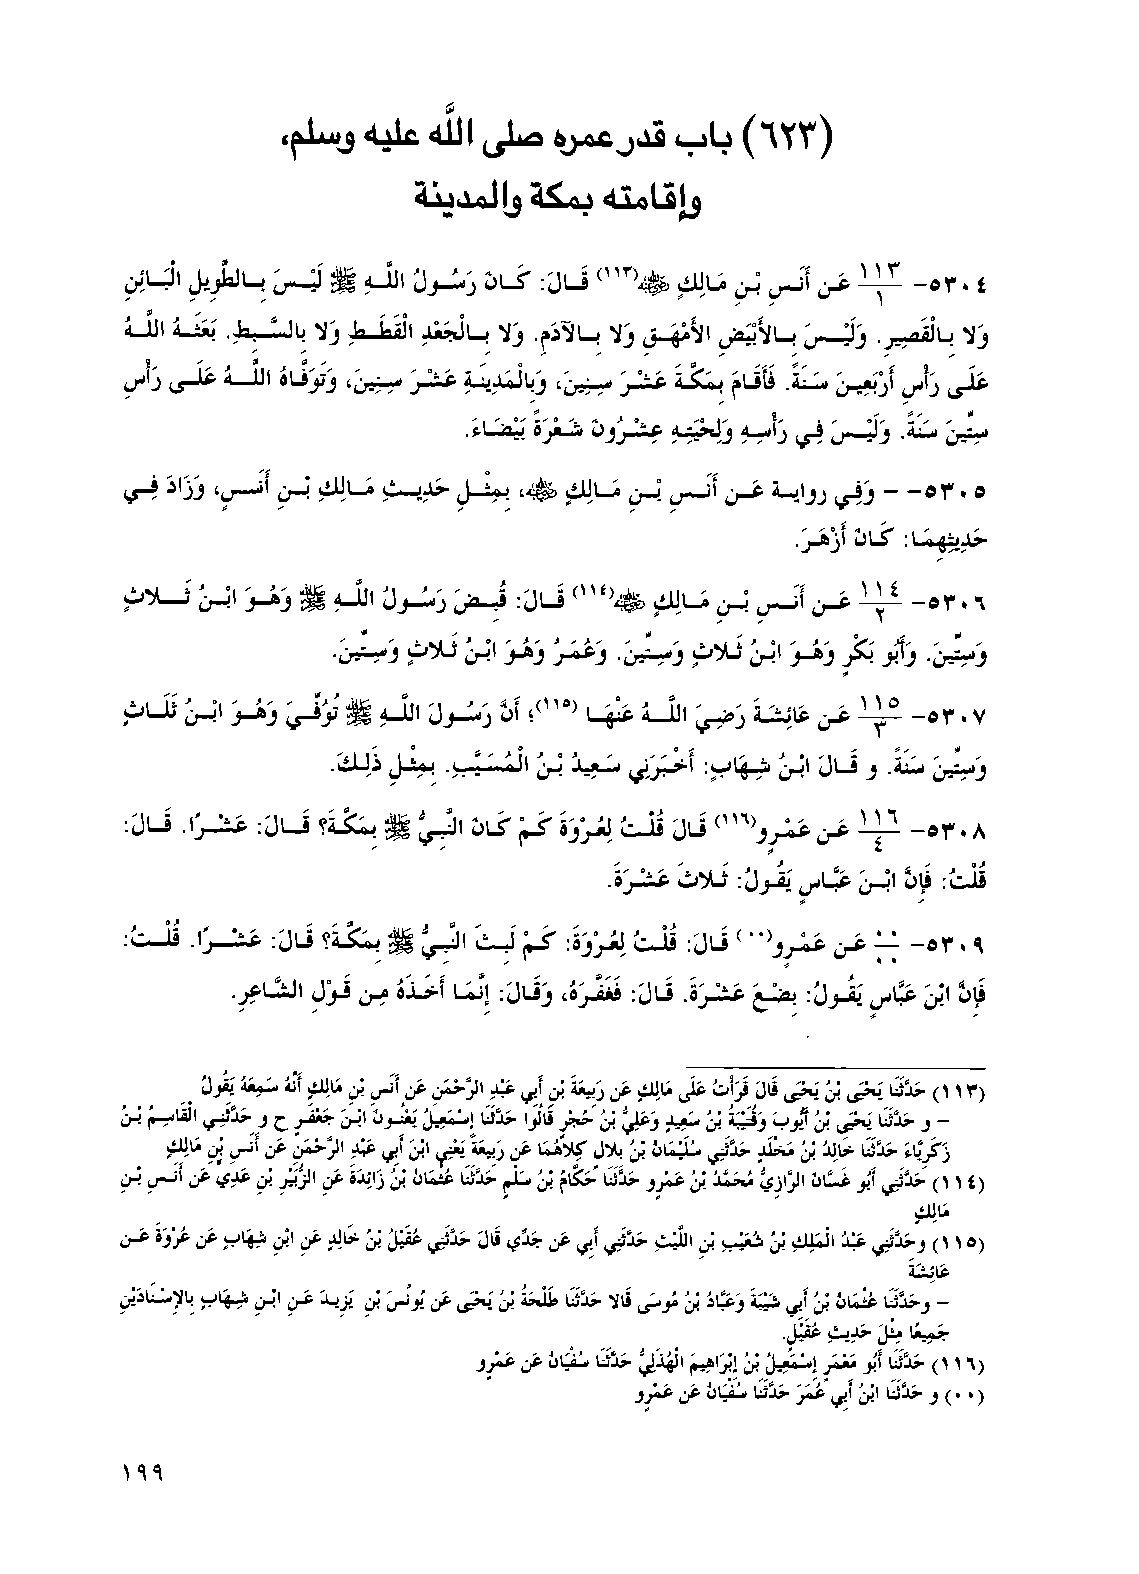 (٦٢٣) باب قدر عمره صلى الله عليه وسلم،
وإقامته بمكة والمدينة
٥٣٠٤- ١١٣/١ عَن أَنَسِ بْنِ مَالِكٍ ﷺ(١١٣) قَالَ: كَانَ رَسُولُ اللَّهِ ﷺ لَيْسَ بِالطَّوِيلِ الْبَائِنِ
وَلا بِالْقَصِيرِ. وَلَيْسَ بِالأَبْيَضِ الأَمْهَقِ وَلا بِالآدَمِ. وَلا بِالْجَعْدِ الْقَطَطِ وَلا بِالسَّبِطِ. بَعَثَهُ اللَّهُ
عَلَى رَأْسِ أَرْبَعِينَ سَنَةً. فَأَقَامَ بِمَكَّةَ عَشْرَ سِنِينَ، وَبِالْمَدِينَةِ عَشْرَ سِنِينَ، وَتَوَفَّاهُ اللَّهُ عَلَى رَأْسِ
سِتِّينَ سَنَةً. وَلَيْسَ فِي رَأْسِهِ وَلِحْيَتِهِ عِشْرُونَ شَعْرَةً بَيْضَاءَ.
٥٣٠٥- - وَفِي رواية عَن أَنَسِ بْنِ مَالِكٍ ﷺ، بِمِثْلِ حَدِيثِ مَالِكِ بْنِ أَنَسٍ، وَزَادَ فِي
حَدِيثِهِمَا: كَانَ أَزْهَرَ.
٥٣٠٦- ١١٤/٢ عَن أَنَسِ بْنِ مَالِكٍ ﷺ(١١٤) قَالَ: قُبِضَ رَسُولُ اللَّهِ ﷺ وَهُوَ ابْنُ ثَلاثٍ
وَسِتِّينَ. وَأَبُو بَكْرٍ وَهُوَ ابْنُ ثَلاثٍ وَسِتِّينَ. وَعُمَرُ وَهُوَ ابْنُ ثَلاثٍ وَسِتِّينَ.
٥٣٠٧- ١١٥/٣ عَن عَائِشَةَ رَضِيَ اللَّهُ عَنْهَا (١١٥)؛ أَنَّ رَسُولَ اللَّهِ ﷺ تُوُفِّيَ وَهُوَ ابْنُ ثَلَاثٍ
وَسِتِّينَ سَنَةً. و قَالَ ابْنُ شِهَابٍ: أَخْبَرَنِي سَعِيدُ بْنُ الْمُسَيَّبِ. بِمِثْلِ ذَلِكَ.
٥٣٠٨- ١١٦/٤ عَن عَمْرٍو(١١٦) قَالَ قُلْتُ لِعُرْوَةَ كَمْ كَانَ النَّبِيُّ ﷺ بِمَكَّةَ؟ قَالَ: عَشْرًا. قَالَ:
قُلْتُ: فَإِنَّ ابْنَ عَبَّاسٍ يَقُولُ: ثَلاثَ عَشْرَةَ.
٥٣٠٩- ٠٠/٠٠ عَن عَمْرٍو(٠٠) قَالَ: قُلْتُ لِعُرْوَةَ: كَمْ لَبِثَ النَّبِيُّ ﷺ بِمَكَّةَ؟ قَالَ: عَشْرًا. قُلْتُ:
فَإِنَّ ابْنَ عَبَّاسٍ يَقُولُ: بِضْعَ عَشْرَةَ. قَالَ: فَغَفَّرَهُ، وَقَالَ: إِنَّمَا أَخَذَهُ مِن قَوْلِ الشَّاعِرِ.
(١١٣) حَدَّثَنَا يَحْيَى بْنُ يَحْيَى قَالَ قَرَأْتُ عَلَى مَالِكٍ عَن رَبِيعَةَ بْنِ أَبِي عَبْدِ الرَّحْمَنِ عَن أَنَسِ بْنِ مَالِكٍ أَنَّهُ سَمِعَهُ يَقُولُ
- و حَدَّثَنَا يَحْيَى بْنُ أَيُّوبَ وَقُتَيْبَةُ بْنُ سَعِيدٍ وَعَلِيُّ بْنُ حُجْرٍ قَالُوا حَدَّثَنَا إِسْمَعِيلُ يَعْنُونَ ابْنَ جَعْفَرٍ ح و حَدَّثَنِي الْقَاسِمُ بْنُ
زَكَرِيَّاءَ حَدَّثَنَا خَالِدُ بْنُ مَخْلَدٍ حَدَّثَنِي سُلَيْمَانُ بْنُ بِلالٍ كِلاهُمَا عَن رَبِيعَةَ يَعْنِي ابْنَ أَبِي عَبْدِ الرَّحْمَنِ عَن أَنَسِ بْنِ مَالِكٍ
(١١٤) حَدَّثَنِي أَبُو غَسَّانَ الرَّازِيُّ مُحَمَّدُ بْنُ عَمْرٍو حَدَّثَنَا حَكَّامُ بْنُ سَلْمٍ حَدَّثَنَا عُثْمَانُ بْنُ زَائِدَةَ عَنِ الزُّبَيْرِ بْنِ عَدِيٍّ عَن أَنَسِ بْنِ
مَالِكٍ
(١١٥) وحَدَّثَنِي عَبْدُ الْمَلِكِ بْنُ شُعَيْبِ بْنِ اللَّيْثِ حَدَّثَنِي أَبِي عَن جَدِّي قَالَ حَدَّثَنِي عُقَيْلُ بْنُ خَالِدٍ عَنِ ابْنِ شِهَابٍ عَن عُرْوَةَ عَن
عَائِشَةَ
- وحَدَّثَنَا عُثْمَانُ بْنُ أَبِي شَيْبَةَ وَعَبَّادُ بْنُ مُوسَى قَالا حَدَّثَنَا طَلْحَةُ بْنُ يَحْيَى عَن يُونُسَ بْنِ يَزِيدَ عَنِ ابْنِ شِهَابٍ بِالإِسْنَادَيْنِ
جَمِيعًا مِثْلَ حَدِيثِ عُقَيْلٍ.
(١١٦) حَدَّثَنَا أَبُو مَعْمَرٍ إِسْمَعِيلُ بْنُ إِبْرَاهِيمَ الْهُذَلِيُّ حَدَّثَنَا سُفْيَانُ عَن عَمْرٍو
(٠٠) و حَدَّثَنَا ابْنُ أَبِي عُمَرَ حَدَّثَنَا سُفْيَانُ عَن عَمْرٍو
١٩٩